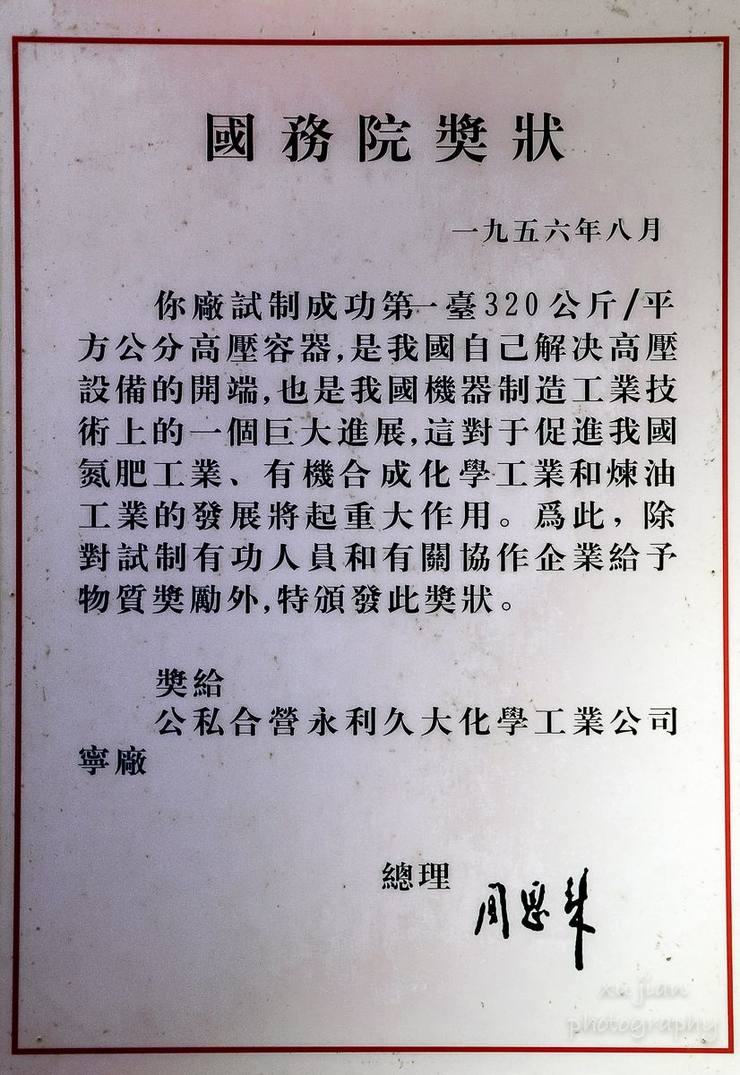 國務院獎狀
一九五六年八月
你廠試制成功第一臺320公斤/平
方公分高壓容器,是我國自己解决高壓
設備的開端,也是我國機器制造工業技
術上的一個巨大進展,這對于促進我國
氮肥工業、有機合成化學工業和煉油
工業的發展將起重大作用。爲此,除
對試制有功人員和有關協作企業給予
物質獎勵外,特頒發此獎狀。
獎給
公私合營永利久大化學工業公司
寧廠
總理 周恩來
xu jian
photography